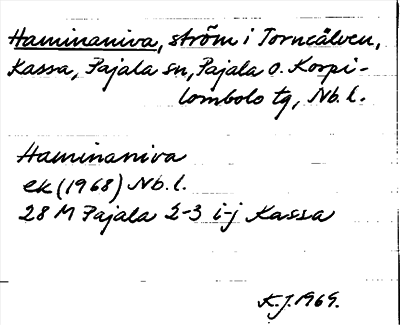 Haminaniva, ström i Torneälven,
Kassa, Pajala sn, Pajala o. Korpi-
lombolo tg, Nb. l.
Haminaniva
ek (1968) Nb. l.
28 M Pajala 2-3 i-j Kassa
K.J. 1969.